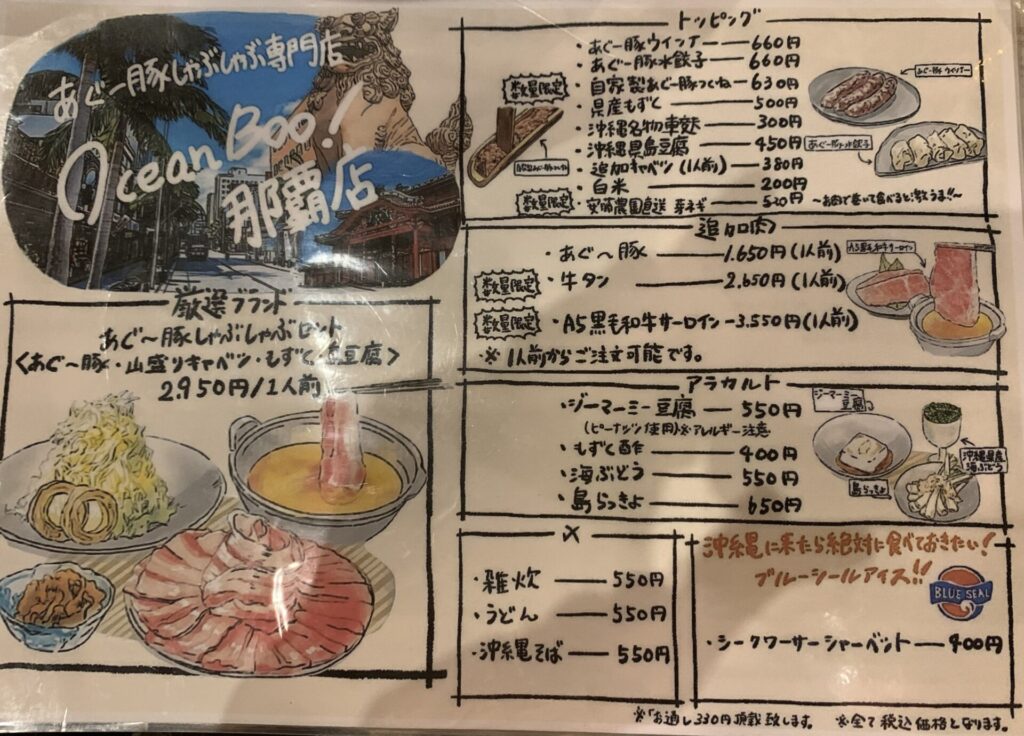 あぐー豚しゃぶしゃぶ専門店
Ocean Boo!
那覇店
厳選ブランド
あぐ〜豚しゃぶしゃぶセット
〈あぐ〜豚・山盛りキャベツ・もずく・豆腐〉
2.950円/1人前
トッピング
・あぐー豚ウインナー 660円
・あぐー豚水餃子 660円
数量限定 ・自家製あぐー豚つくね 630円
・県産もずく 500円
・沖縄名物車麩 300円
・沖縄県島豆腐 450円
・追加キャベツ(1人前) 380円
・白米 200円
数量限定 ・安藤農園直送 芽ネギ 520 〜お肉で巻いて食べると激うま!!〜
あぐー豚ウインナー
あぐー豚水餃子
追加肉
・あぐ〜豚 1.650円(1人前)
数量限定 ・牛タン 2.650円(1人前)
数量限定 ・A5黒毛和牛サーロイン 3.550円(1人前)
・※1人前からご注文可能です。
A5黒毛和牛サーロイン
アラカルト
・ジーマーミー豆腐 550円
(ピーナッツ使用)※アレルギー注意
・もずく酢 400円
・海ぶどう 550円
・島らっきょ 650円
ジーマーミー豆腐
島らっきょ
沖縄県産海ぶどう
〆
・雑炊 550円
・うどん 550円
・沖縄そば 550円
沖縄に来たら絶対に食べておきたい!
ブルーシールアイス!!
BLUE SEAL
・シークワーサーシャーベット 400円
※お通し330円頂戴致します。 ※全て税込価格となります。